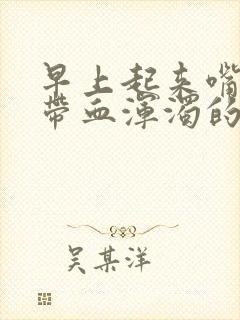 早上起来嘴
带血浑浊的
吴某洋